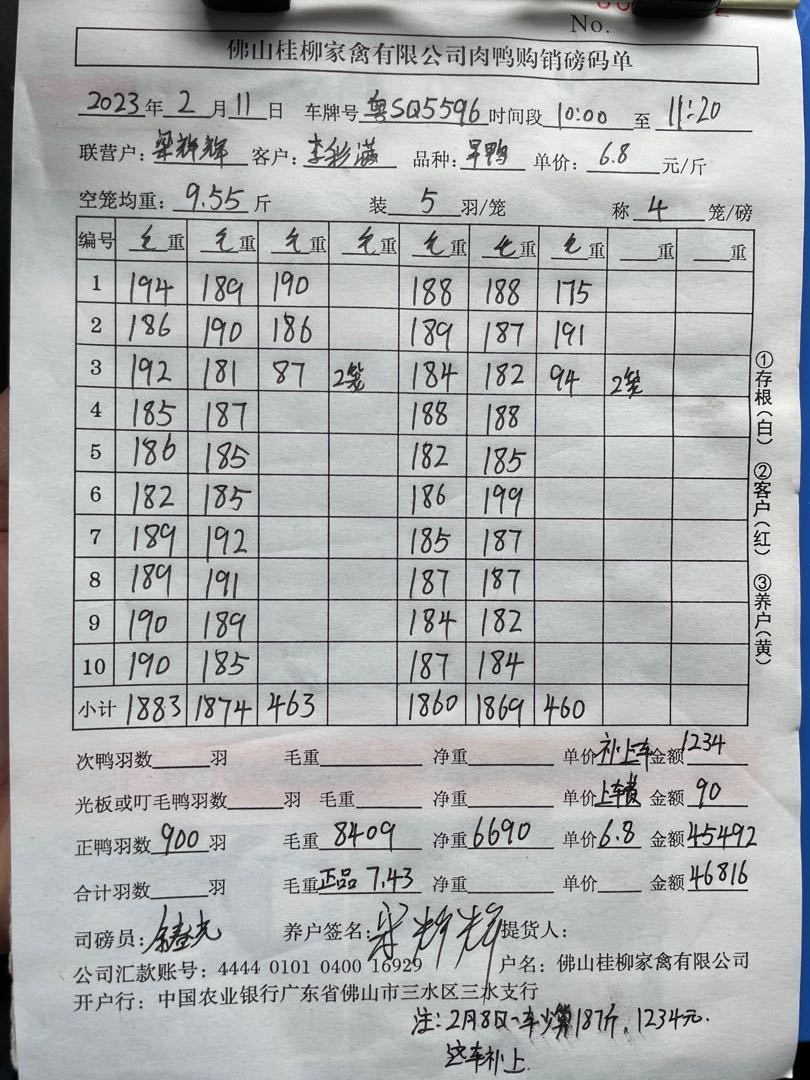 No.
佛山桂柳家禽有限公司肉鸭购销磅码单
2023年2月11日 车牌号粤SQ5596时间段10:00至11:20
联营户:梁辉辉 客户:李彩满 品种:旱鸭 单价:6.8元/斤
空笼均重:9.55斤 装5羽/笼 称4笼/磅
编号 毛重 毛重 毛重 毛重 毛重 毛重 毛重 重 重
1 194 189 190 188 188 175
2 186 190 186 189 187 191
3 192 181 87 2笼 184 182 94 2笼
4 185 187 188 188
5 186 185 182 185
6 182 185 186 199
7 189 192 185 187
8 189 191 187 187
9 190 189 184 182
10 190 185 187 184
小计 1883 1874 463 1860 1869 460
次鸭羽数 羽 毛重 净重 单价补上车金额1234
光板或叮毛鸭羽数 羽 毛重 净重 单价上车费金额90
正鸭羽数900羽 毛重8409 净重6690 单价6.8 金额45492
合计羽数 羽 毛重正品7.43 净重 单价 金额46816
司磅员: 养户签名:梁辉辉 提货人:
公司汇款账号:4444 0101 0400 16929 户名:佛山桂柳家禽有限公司
开户行:中国农业银行广东省佛山市三水区三水支行
注:2月8日一车少算187斤,1234元.
这车补上.
①存根(白) ②客户(红) ③养户(黄)